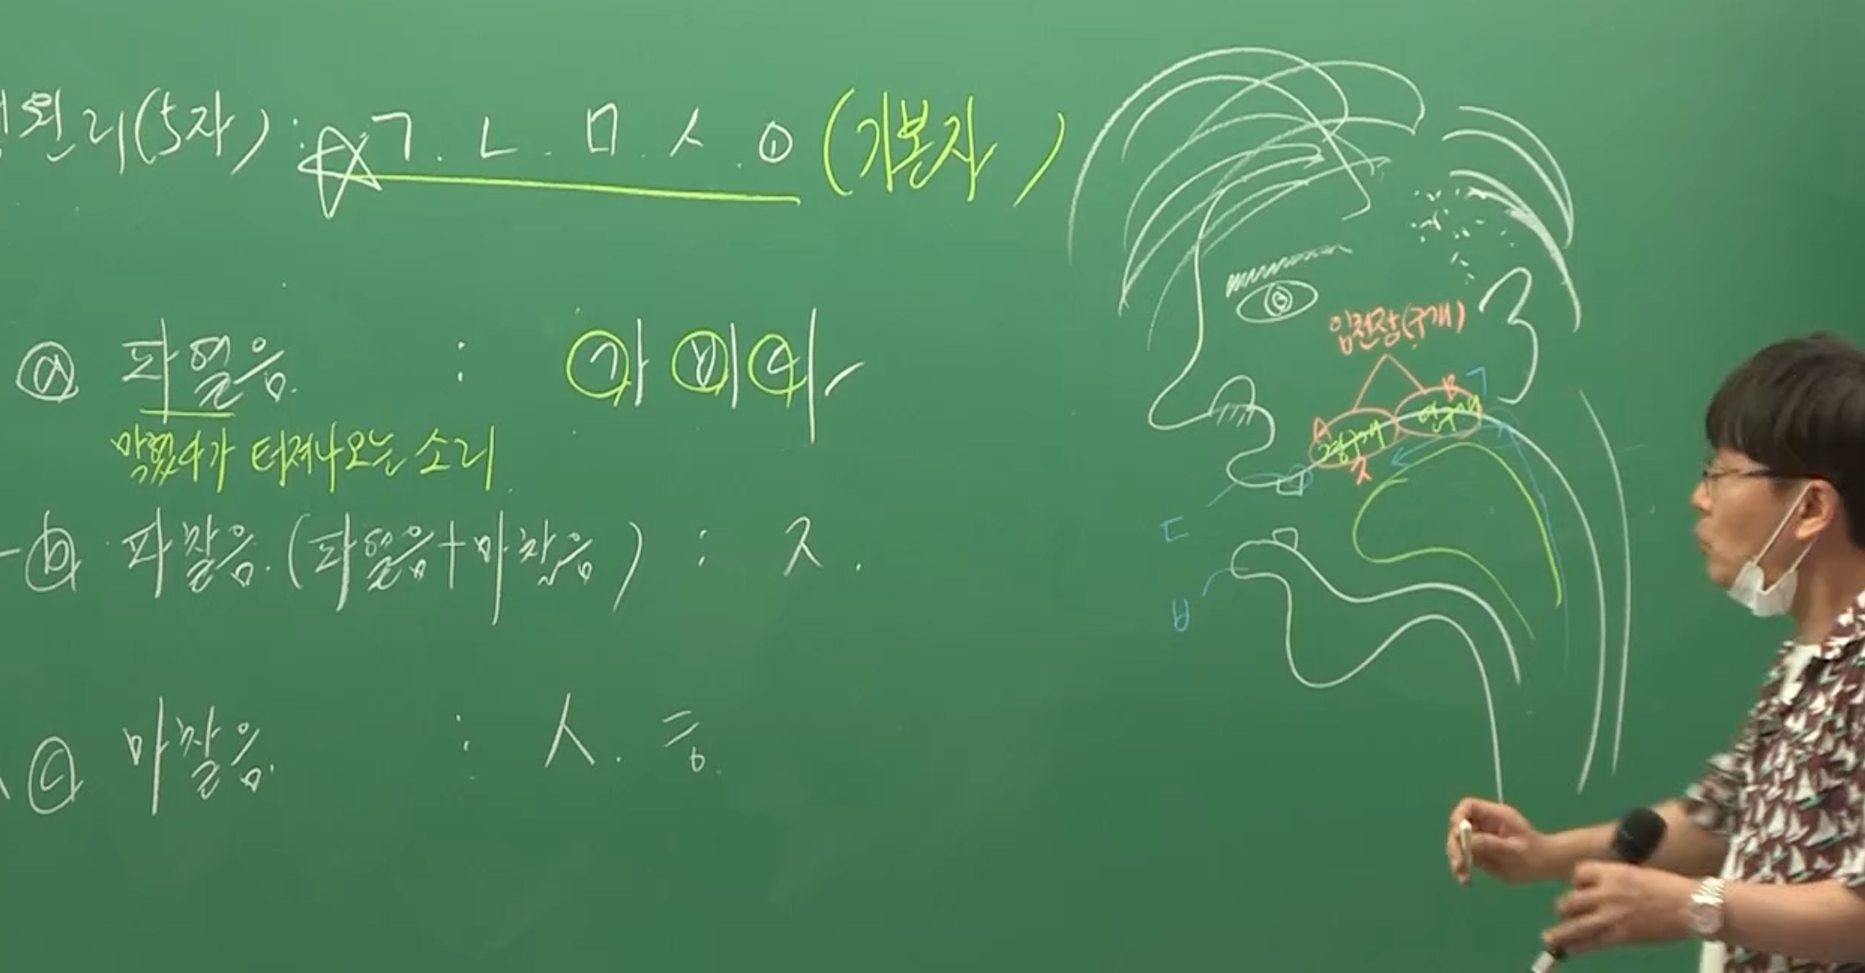 원리(5자): ㄱ.ㄴ.ㅁ.ㅅ.ㅇ (기본자)
ⓐ 파열음 : 가 비 다
막혔다가 터져나오는 소리
ⓑ 파찰음.(파열음+마찰음) : ㅈ.
ⓒ 마찰음. : ㅅ. ㅎ.
입천장(구개)
A B ㄱ
경구개 연구개
ㅈ
ㄷ
ㅂ